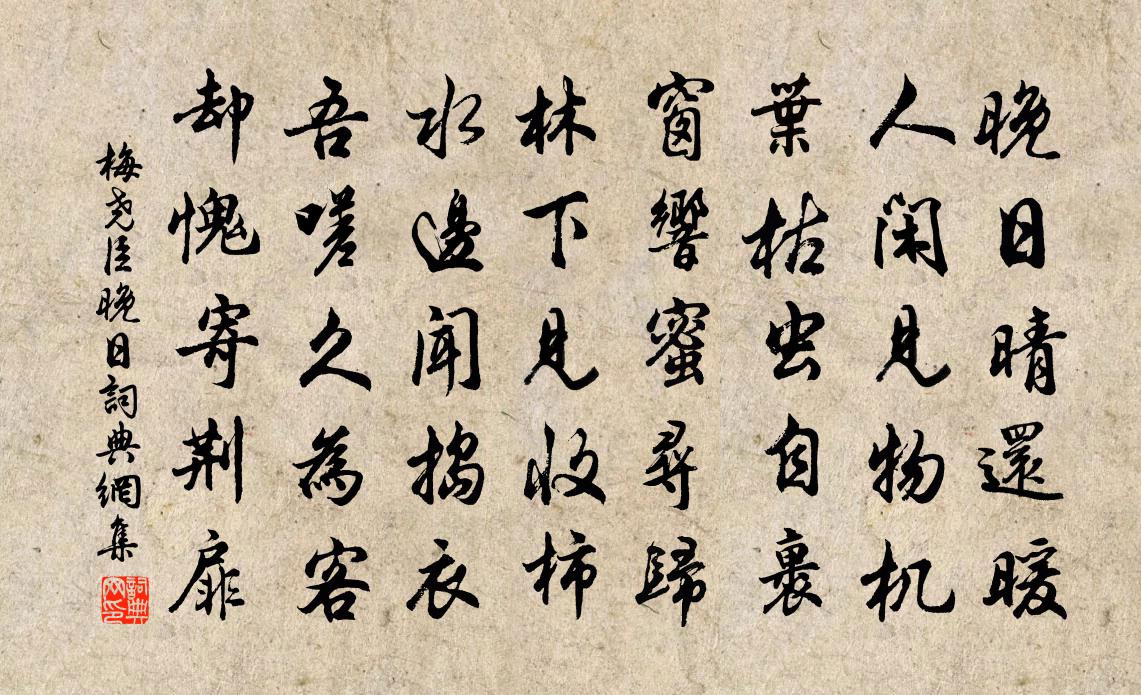 晚日晴還暖
人閑見物机
葉枯虫自裹
窗響蜜尋歸
林下見收柿
水邊聞搗衣
吾嗟久為客
却愧寄荆扉
梅尧臣晚日詞典網集
詞典网印